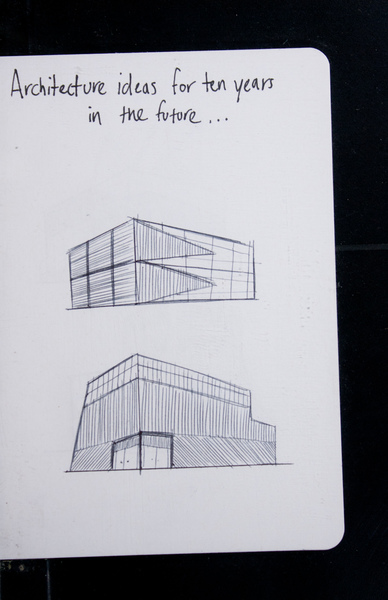 Architecture ideas for ten years
in the future...